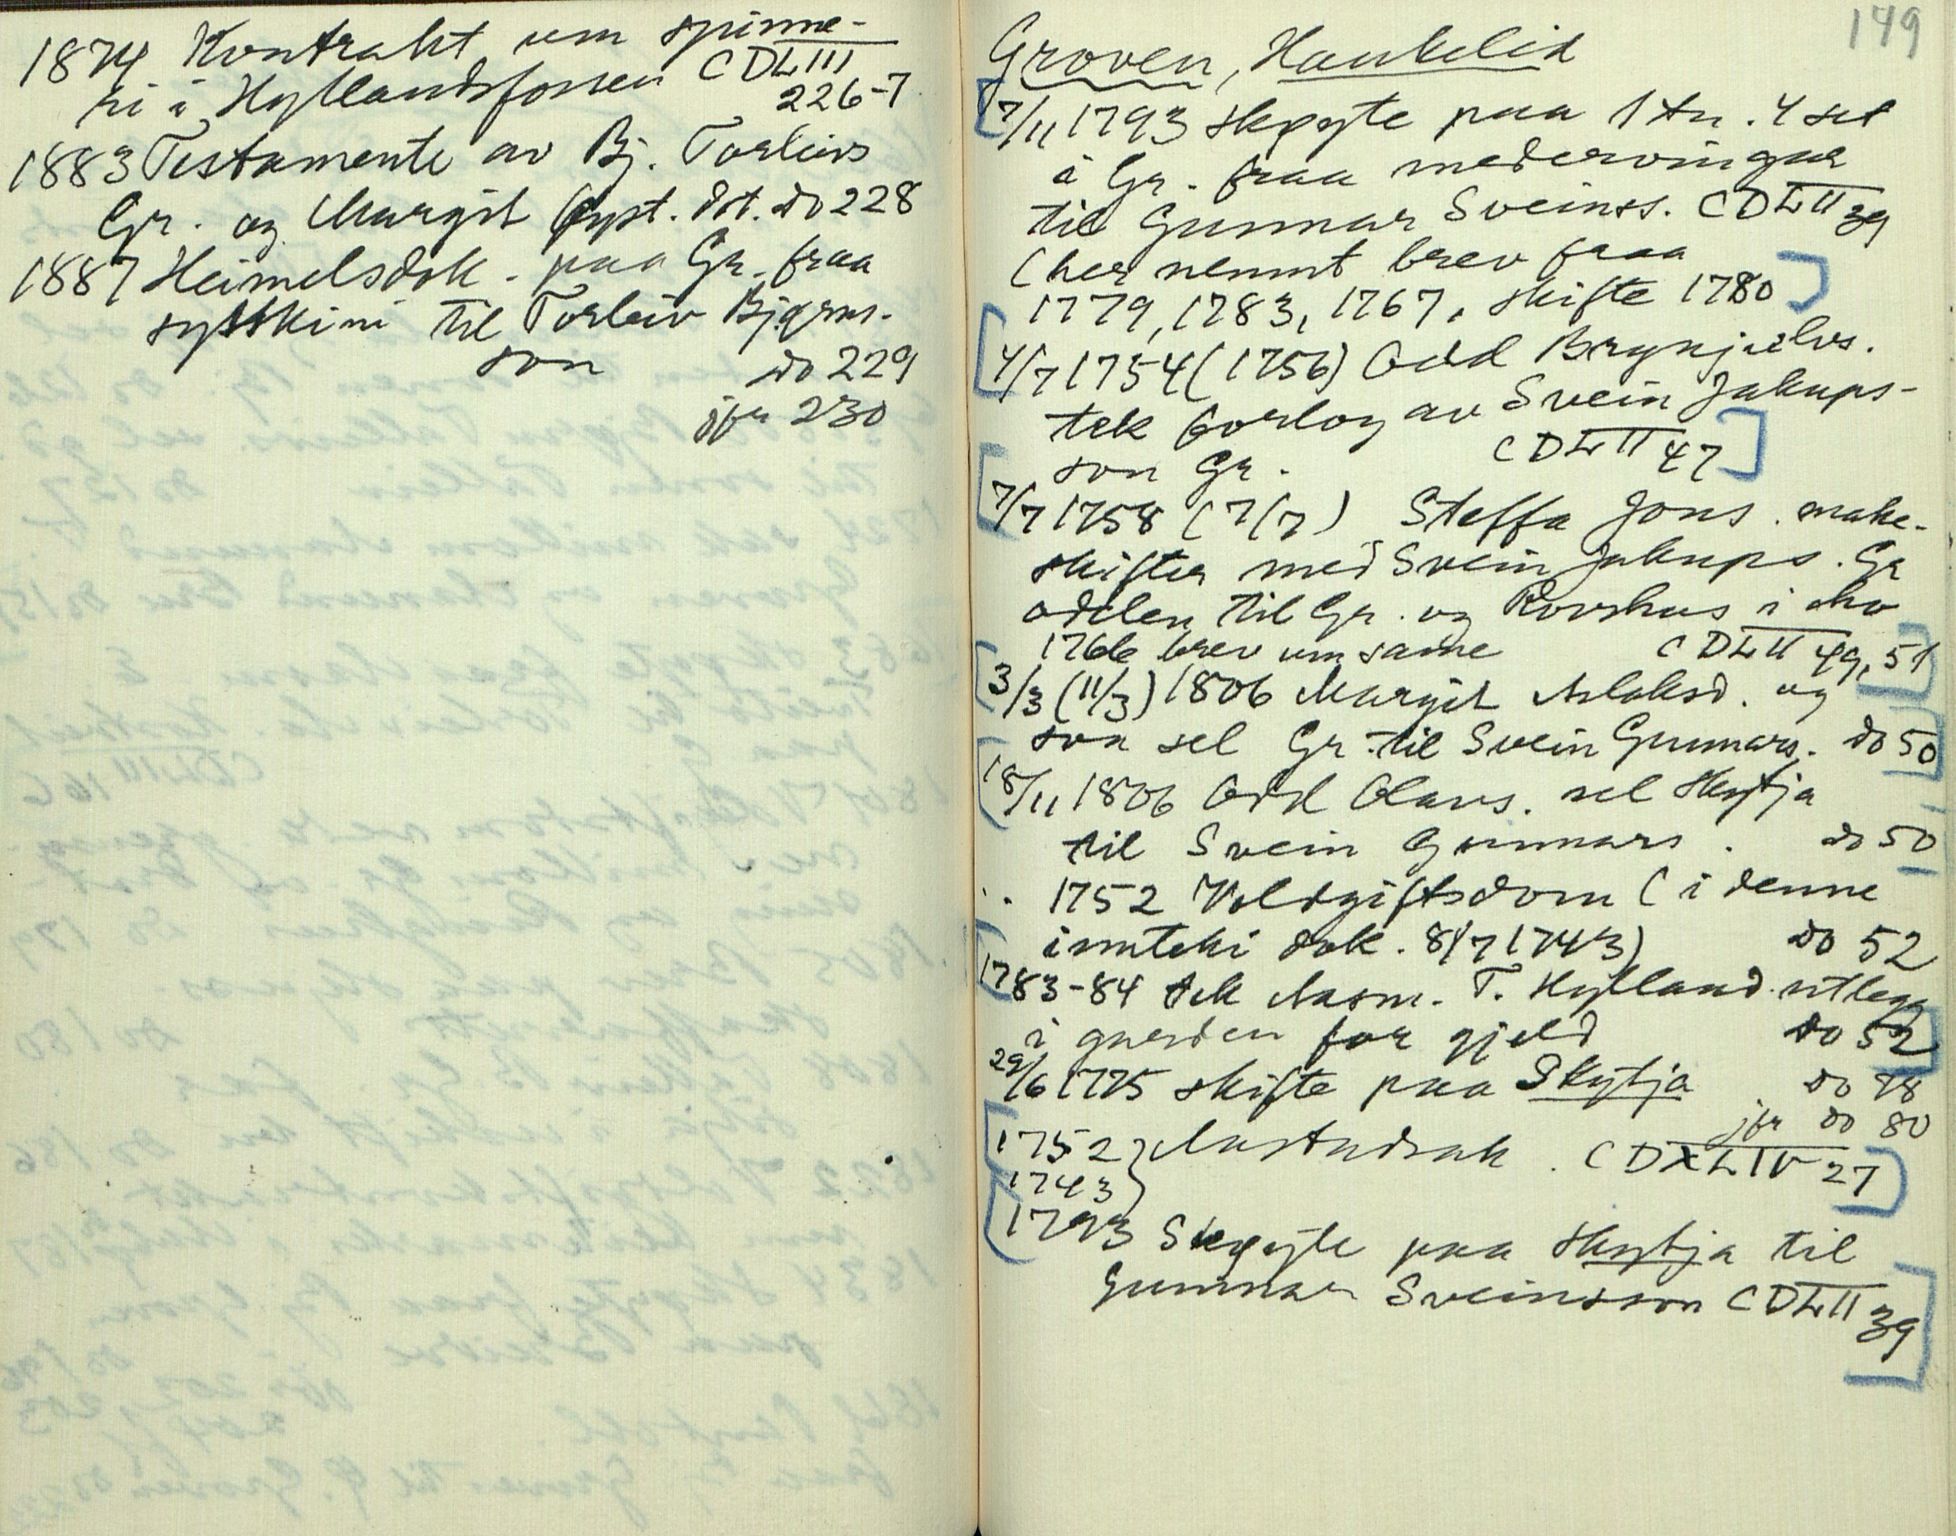 1874 Kontrakt um spinne-
ri i Hyllandsfossen CDLIII
226-7
1883 Testamente av Bj. Torleivs
Gr. og Margit Øyst. dot. do 228
1887 Heimelsdok. paa Gr. fraa
syskini til Torleiv Bjørns-
son do 229
jfr 230
149
Groven, Haukelid
7/11 1793 skøyte paa 1 tn. 4 set
i Gr. fraa medervingar
til Gunnar Sveinss. CDLII 39
(her nemnt brev fraa
1779, 1783, 1767, skifte 1780
4/7 1754 (1756) Odd Brynjulvs.
tek forlog av Svein Jakups-
son Gr. CDLII 47
7/7 1758 (7/7) Steffa Jons. make-
skifter med Svein Jakups. Gr
odelen til Gr. og Rovhus i Mo
1766 brev um same CDLII 49, 51
3/3 (11/3) 1806 Margit Aslaksd. og
son sel Gr. til Svein Gunnars. do 50
18/11 1806 Odd Olavs. sel Skytja
til Svein Gunnars. do 50
.. 1752 Voldgiftsdom (i denne
innteki dok. 8/7 1743) do 52
1783-84 fek Aasm. T. Hylland utlegg
i garden for gjeld do 52
29/6 1775 skifte paa Skytja do 78
jfr do 80
1752 } Aastadsak. CDXLIV 27
1743 }
1793 Skøyte paa Skytja til
Gunnar Sveinsson CDLII 39